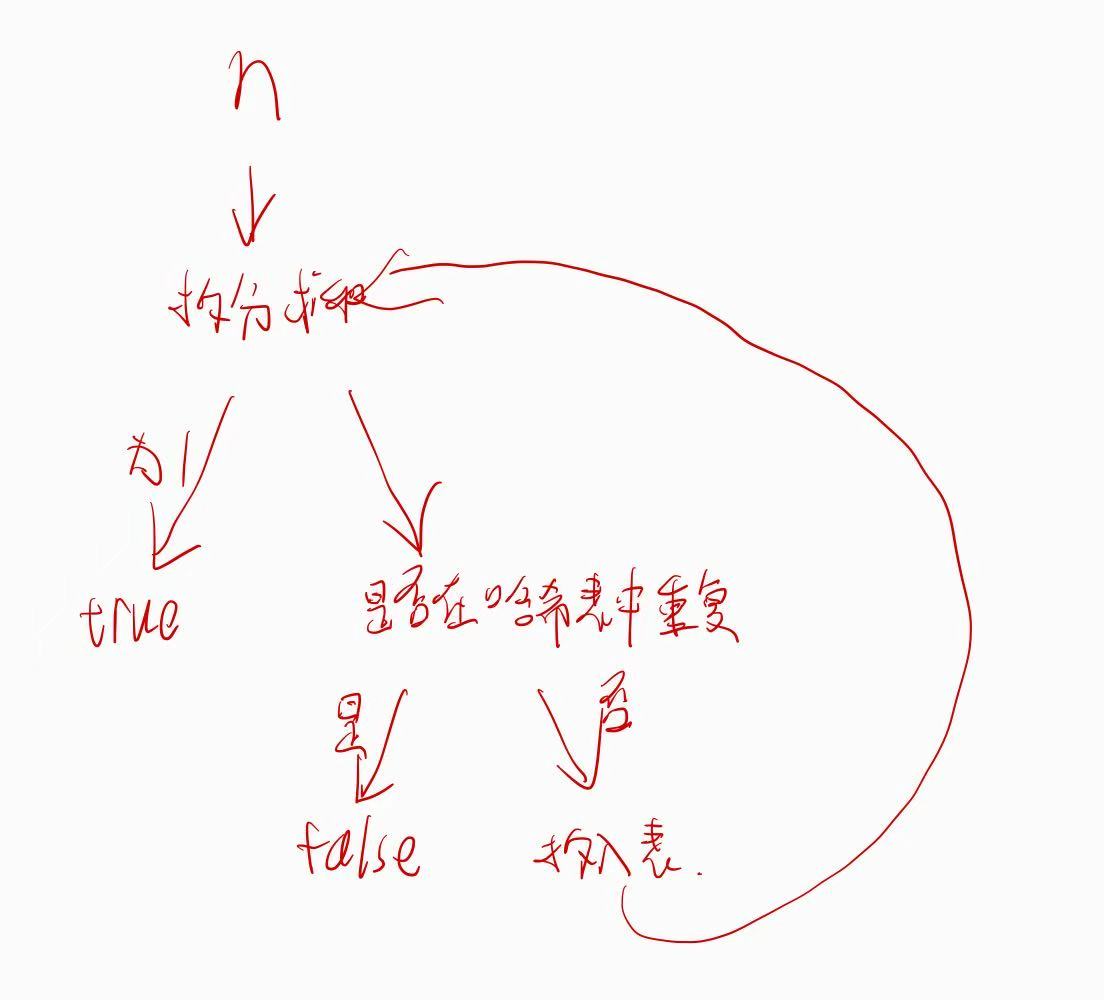 n
拆分求和
为1
true
是否在哈希表中重复
是
否
false
拆入表.